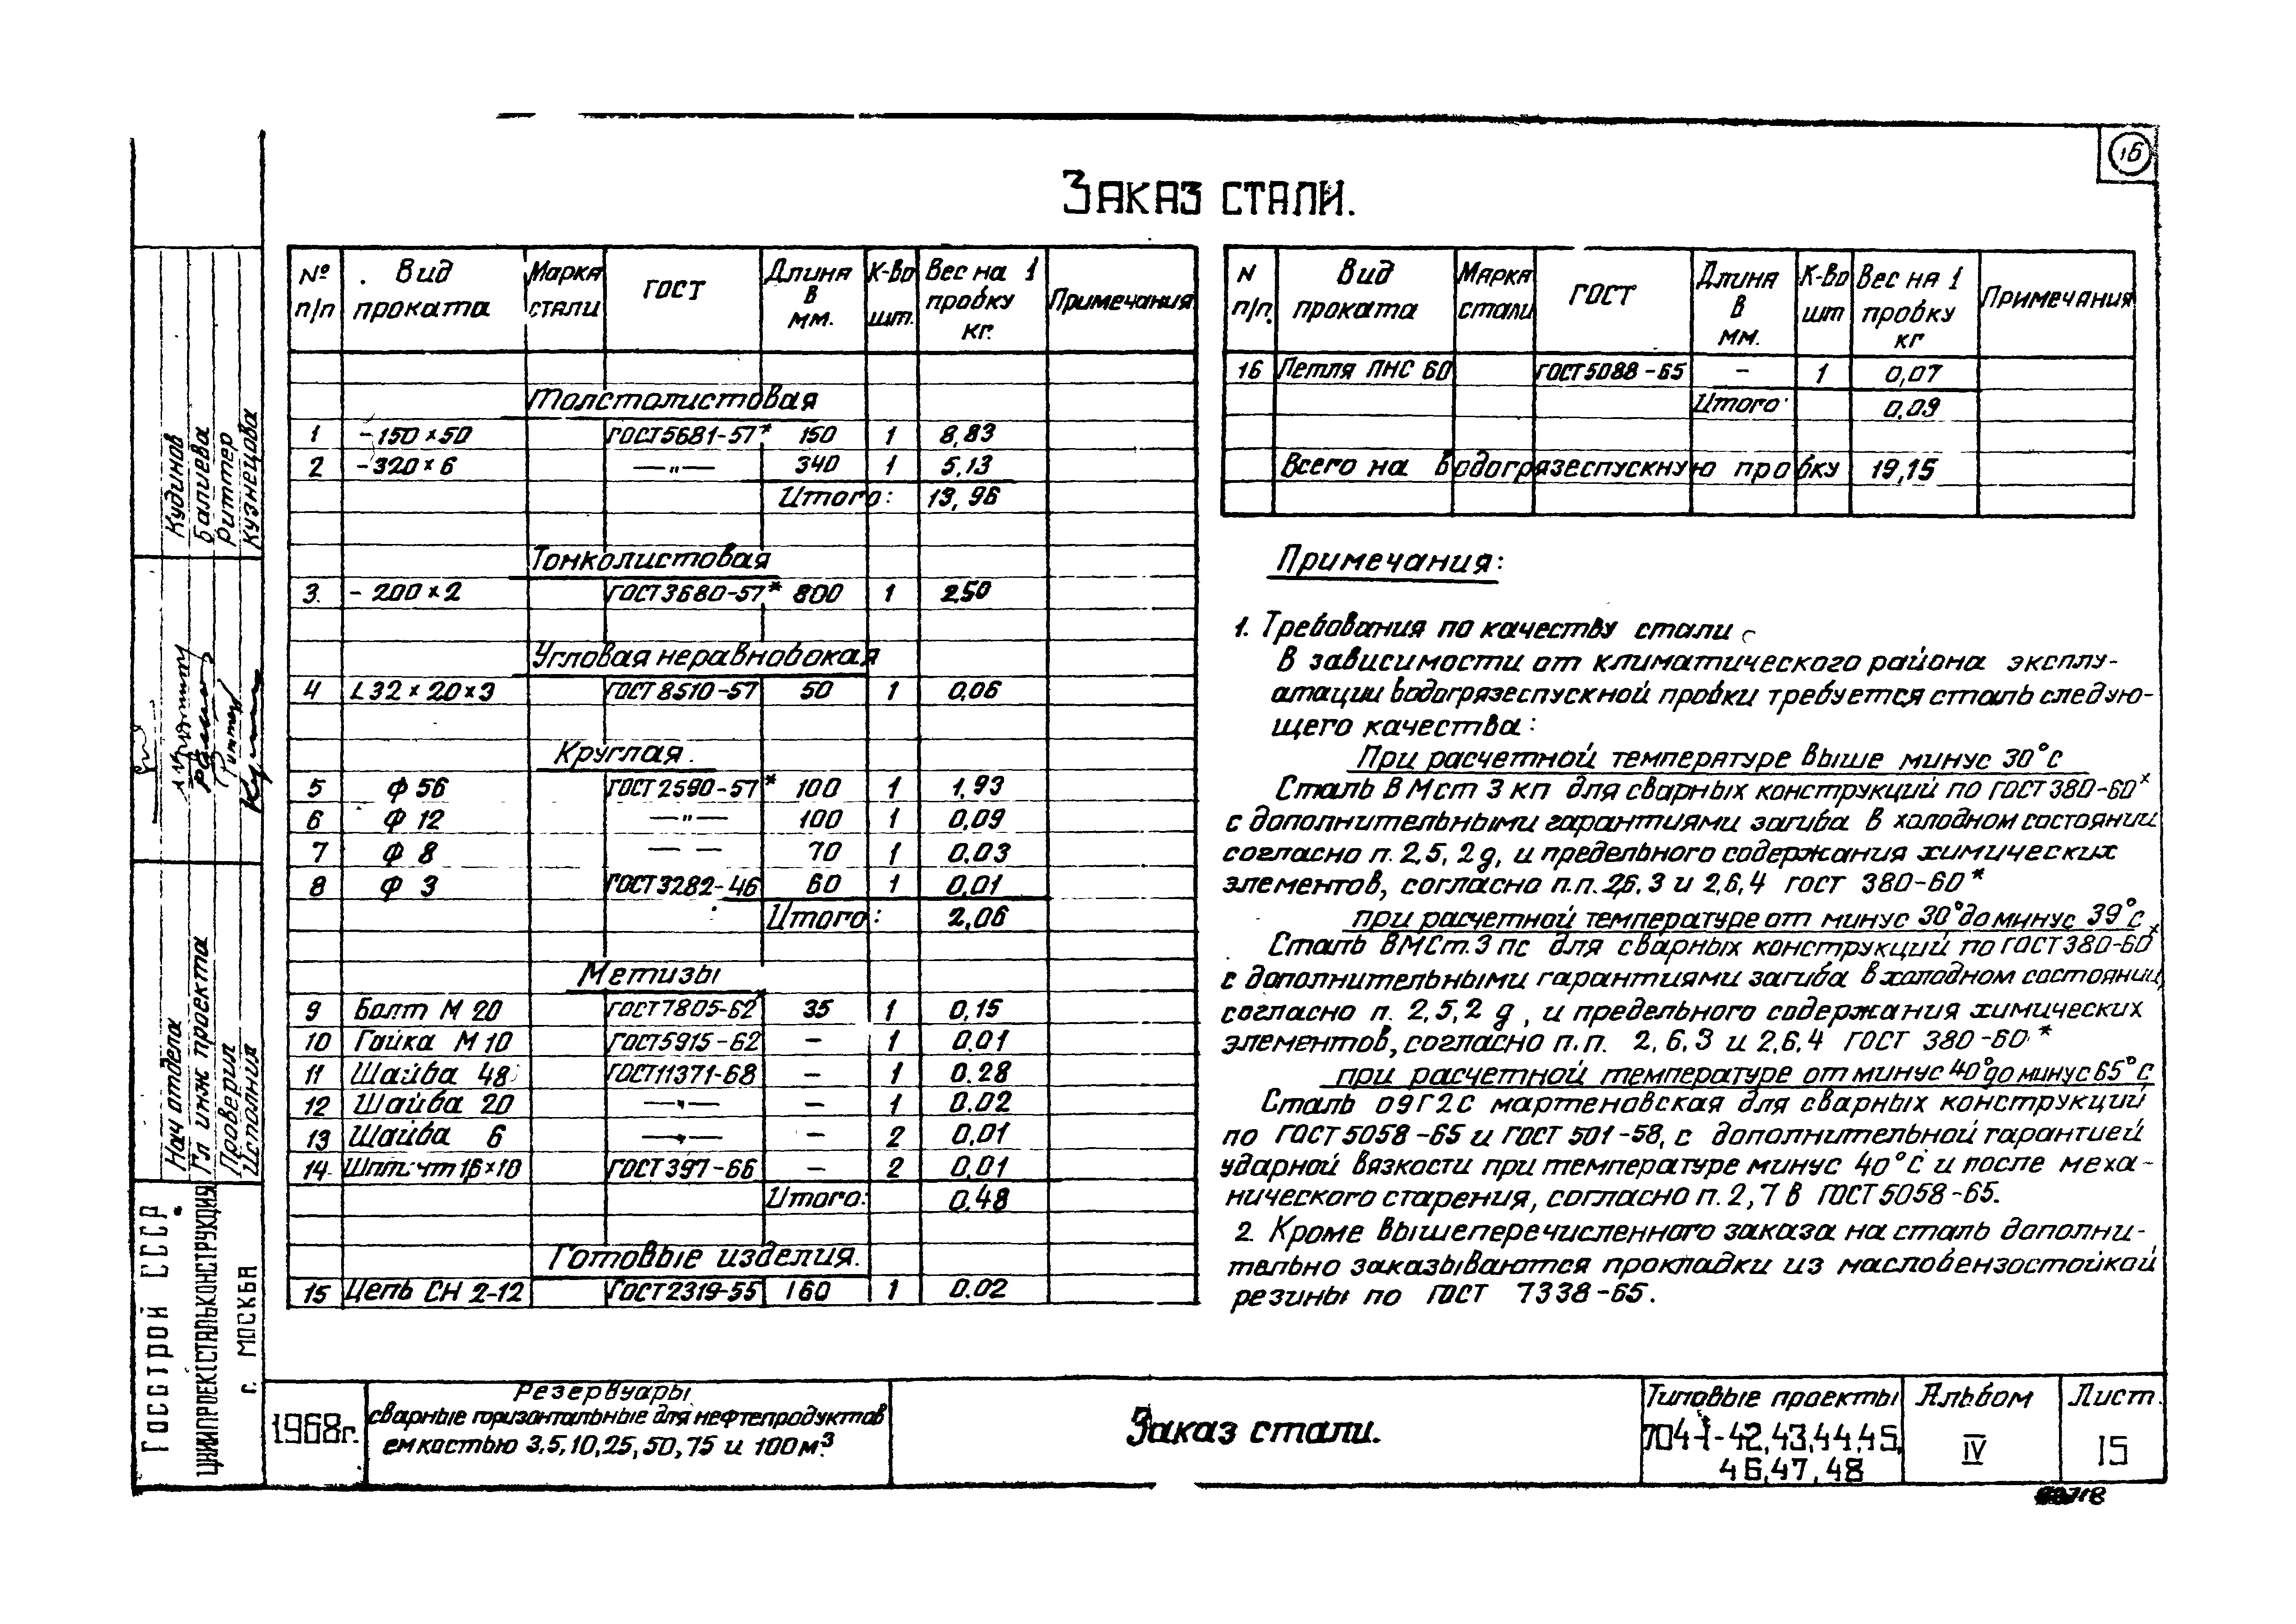 16
Заказ стали.
№ п/п | Вид проката | Марка стали | ГОСТ | Длина в мм. | К-во шт. | Вес на 1 пробку кг. | Примечания
Толстолистовая
1 | -150×50 | ГОСТ5681-57* | 150 | 1 | 8,83
2 | -320×6 | —"— | 340 | 1 | 5,13
Итого: 13,96
Тонколистовая
3. | -200×2 | ГОСТ3680-57* | 800 | 1 | 2,50
Угловая неравнобокая
4 | L32×20×3 | ГОСТ8510-57 | 50 | 1 | 0,06
Круглая.
5 | ф 56 | ГОСТ2590-57* | 100 | 1 | 1,93
6 | ф 12 | —"— | 100 | 1 | 0,09
7 | ф 8 | — — | 70 | 1 | 0,03
8 | ф 3 | ГОСТ3282-46 | 60 | 1 | 0,01
Итого: 2,06
Метизы
9 | Болт М 20 | ГОСТ7805-62* | 35 | 1 | 0,15
10 | Гайка М 10 | ГОСТ5915-62 | – | 1 | 0,01
11 | Шайба 48 | ГОСТ11371-68 | – | 1 | 0.28
12 | Шайба 20 | —"— | – | 1 | 0.02
13 | Шайба 6 | —"— | – | 2 | 0,01
14 | Шплинт 16×10 | ГОСТ397-66 | – | 2 | 0,01
Итого: 0,48
Готовые изделия.
15 | Цепь СН 2-12 | ГОСТ2319-55 | 160 | 1 | 0.02
N п/п. | Вид проката | Марка стали | ГОСТ | Длина в мм. | К-во шт | Вес на 1 пробку кг | Примечания
16 | Петля ПНС 60 | ГОСТ5088-65 | – | 1 | 0,07
Итого: 0,09
Всего на водогрязеспускную пробку 19,15
Примечания:
1. Требования по качеству стали
В зависимости от климатического района эксплу-
атации водогрязеспускной пробки требуется сталь следую-
щего качества:
При расчетной температуре выше минус 30°С
Сталь В Мст 3 кп для сварных конструкций по ГОСТ 380-60*
с дополнительными гарантиями загиба в холодном состоянии
согласно п. 2,5, 2д, и предельного содержания химических
элементов, согласно п.п. 2,6,3 и 2,6,4 ГОСТ 380-60*
при расчетной температуре от минус 30° до минус 39°С
Сталь ВМСт.3 пс для сварных конструкций по ГОСТ 380-60*
с дополнительными гарантиями загиба в холодном состоянии,
согласно п. 2,5,2 д, и предельного содержания химических
элементов, согласно п.п. 2,6,3 и 2,6,4 ГОСТ 380-60*
при расчетной температуре от минус 40° до минус 65°С
Сталь 09Г2С мартеновская для сварных конструкций
по ГОСТ 5058-65 и ГОСТ 501-58, с дополнительной гарантией
ударной вязкости при температуре минус 40°С и после меха-
нического старения, согласно п. 2,7 в ГОСТ 5058-65.
2. Кроме вышеперечисленного заказа на сталь дополни-
тельно заказываются прокладки из маслобензостойкой
резины по ГОСТ 7338-65.
Госстрой СССР
ЦНИИПРОЕКТСТАЛЬКОНСТРУКЦИЯ
г. МОСКВА
Нач отдела Кудинов
Гл инж проекта Балиева
Проверил Риттер
Исполнил Кузнецова
1968г.
Резервуары
сварные горизонтальные для нефтепродуктов
емкостью 3,5,10,25,50,75 и 100м³
Заказ стали.
Типовые проекты
704-1-42,43,44,45,
46,47,48
Альбом
IV
Лист.
15